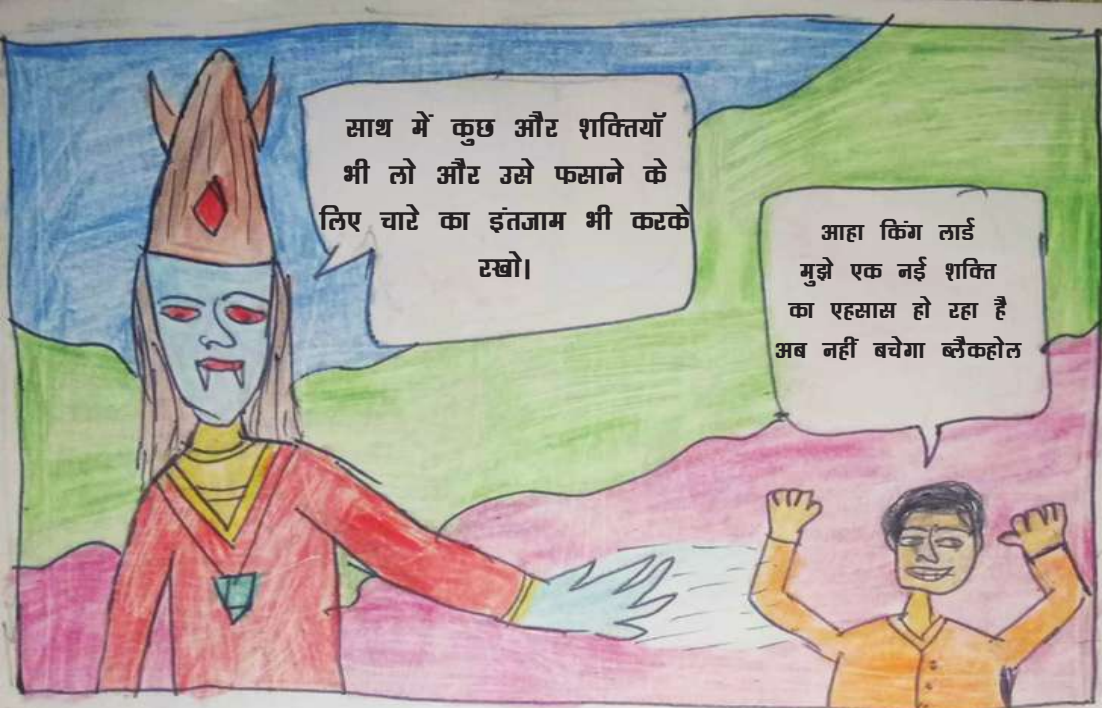 साथ में कुछ और शक्तियॉ
भी लो और उसे फसाने के
लिए चारे का इंतजाम भी करके
रखो।
आहा किंग लार्ड
मुझे एक नई शक्ति
का एहसास हो रहा है
अब नहीं बचेगा ब्लैकहोल